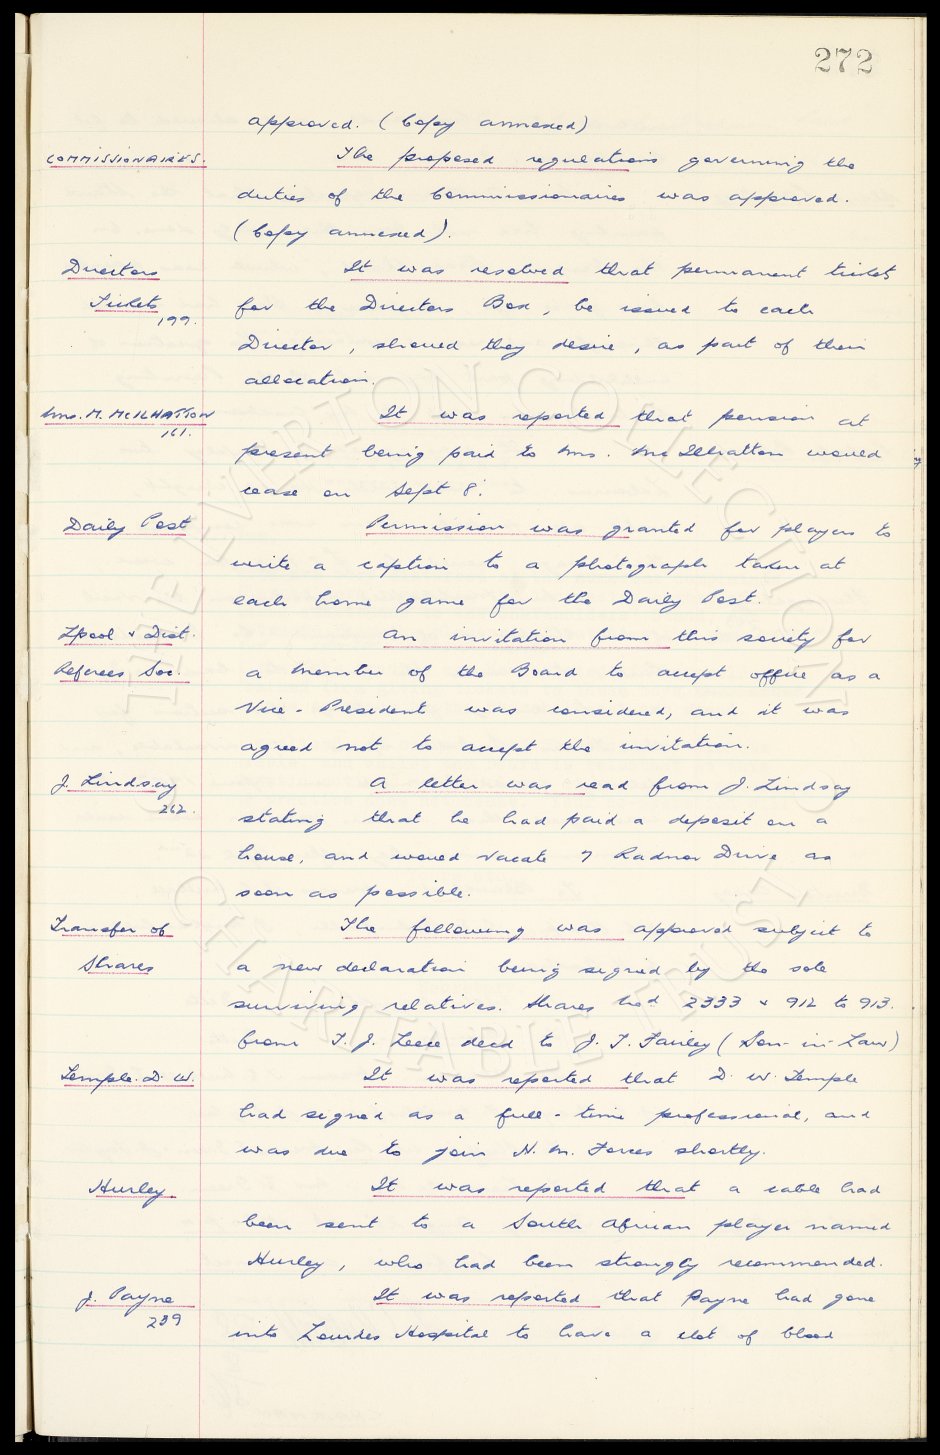 272
approved. (Copy annexed)
COMMISSIONAIRES. The proposed regulations governing the
duties of the Commissionaires was approved.
(Copy annexed).
Directors It was resolved that permanent tickets
Tickets for the Directors Box, be issued to each
199. Director, should they desire, as part of their
allocation.
Mrs. M. McILHATTON It was reported that pension at
161. present being paid to Mrs. McIlhatton would
cease on Sept 8.
Daily Post Permission was granted for players to
write a caption to a photograph taken at
each home game for the Daily Post.
Lpool & Dist. An invitation from this society for
Referees Soc. a member of the Board to accept office as a
Vice-President was considered, and it was
agreed not to accept the invitation.
J. Lindsay A letter was read from J. Lindsay
262. stating that he had paid a deposit on a
house, and would vacate 7 Radnor Drive as
soon as possible.
Transfer of The following was approved subject to
Shares a new declaration being signed by the sole
surviving relatives. Shares No 2333 & 912 to 913.
from T. J. Leece decd to J. T. Fairley (Son-in-Law)
Temple. D. W. It was reported that D. W. Temple
had signed as a full-time professional, and
was due to join H. M. Forces shortly.
Hurley. It was reported that a cable had
been sent to a South African player named
Hurley, who had been strongly recommended.
J. Payne It was reported that Payne had gone
239 into Lourdes Hospital to have a clot of blood
THE EVERTON COLLECTION
CHARITABLE TRUST